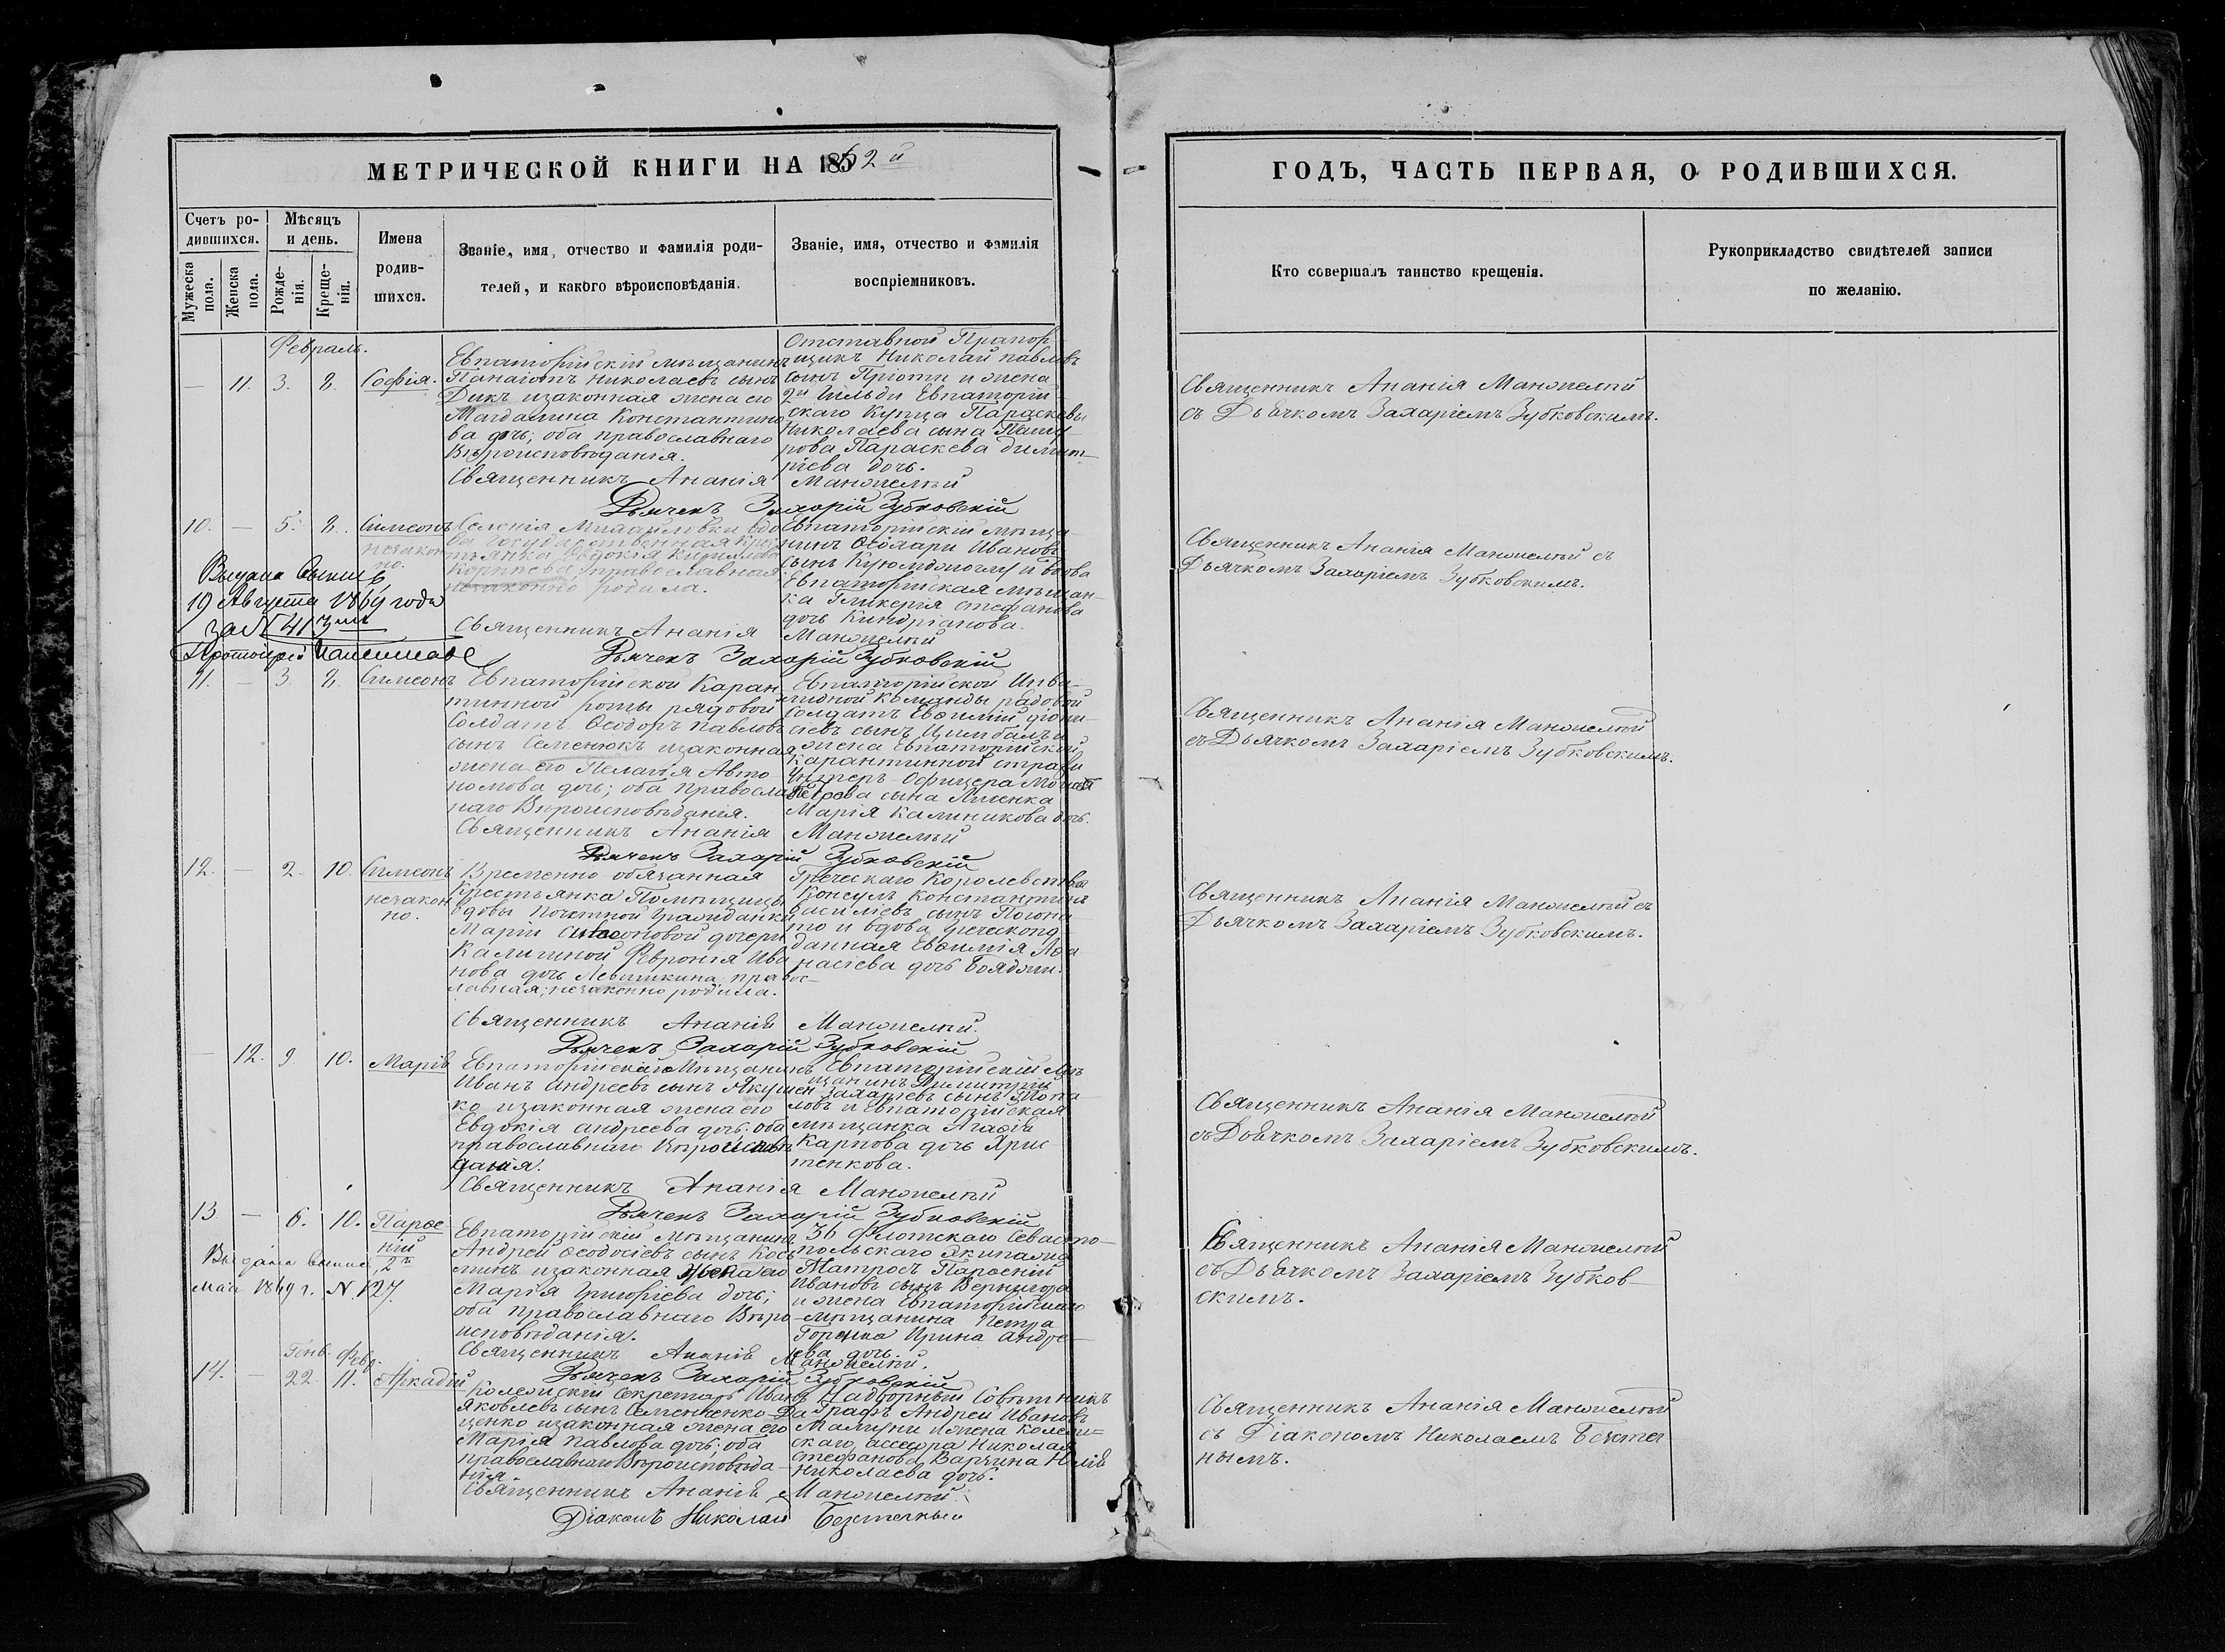 МЕТРИЧЕСКОЙ КНИГИ НА 1862й
Счетъ ро-
дившихся.
Мужеска
пола.
Женска
пола.
Мѣсяцъ
и день.
Рожде-
нія.
Креще-
нія.
Имена
родив-
шихся.
Званіе, имя, отчество и фамилія роди-
телей, и какого вѣроисповѣданія.
Званіе, имя, отчество и фамилія
воспріемниковъ.
Февраль.
— 11. 3. 8. Софія.
Евпаторійскій мѣщанинъ
Панаіотъ Николаевъ сынъ
Дикъ изаконная жена его
Магдалина Константино
ва дочь; оба православнаго
Вѣроисповѣданія.
Отставной Прапор-
щикъ Николай павловъ
сынъ Пріоти и жена
2й Гильди Евпаторій
скаго Купца Параскевы
Николаева сына Пашу-
рова Параскева димит-
ріева дочь.
Священникъ Ананія Манопелтій
Дьячекъ Захарій Зубковскій
10. — 5. 8. Симеонъ
незакон
но.
Селенія Михайловки вдо
ва государственная Крес
тьянка Евдокія Кирилова
Корнѣева, православная
незаконно родила.
Евпаторійскій мѣща
нинъ Ѳеохари Ивановъ
сынъ и вдова
Евпаторійская мѣщан-
ка Гликерія стефанова
дочь Киндріанова.
Выдана выпись
19 Августа 1869 года
за N 413мъ
Протоиерей
Священникъ Ананія Манопелтій
Дьячекъ Захарій Зубковскій
11. — 3. 8. Симеонъ
Евпаторійской Каран
тинной роты рядовой
Солдатъ Ѳеодоръ павловъ
сынъ Семенюкъ изаконная
жена его Пелагія Авто
номова дочь; оба православ
наго Вѣроисповѣданія.
Евпаторійской Инва-
лидной Команды рядовой
солдатъ Евѳимій діони-
сіевъ сынъ Цимбалъ и
жена Евпаторійской
карантинной стражи
Унтеръ Офицера
Петрова сына Лисенка
Марія Калиникова дочь.
Священникъ Ананія Манопелтій
Дьячекъ Захарій Зубковскій
12. — 2. 10. Симеонъ
незакон
но.
Временно-обязанная
Крестьянка Помѣщицы
вдовы Почетной гражданки
Маріи Симеоновой дочери
Калигиной Февронія Ива
нова дочь Левшкина, правос-
лавная; незаконно родила.
Греческаго Королевства
Консулъ Константинъ
василіевъ сынъ Погона
то и вдова греческопод
данная Евѳимія Аѳа
насіева дочь Бояджи.
Священникъ Ананія Манопелтій.
Дьячекъ Захарій Зубковскій
— 12. 9 10. Марія
Евпаторійскій Мѣщанинъ
Иванъ Андреевъ сынъ Якушен
ко изаконная жена его
Евдокія андреева дочь. оба
православнаго Вѣроисповѣ
данія.
Евпаторійскій Мѣ
щанинъ Димитрій
Захаріевъ сынъ Попа
ловъ и Евпаторійская
мѣщанка Агаѳія
Карпова дочь Хрис
тенкова.
Священникъ Ананія Манопелтій
Дьячекъ Захарій Зубковскій
13 — 6. 10. Парѳе
ній
Евпаторійскій мѣщанинъ
Андрей Ѳеодосіевъ сынъ Кось
минъ изаконная жена его
Марія Григоріева дочь;
оба православнаго Вѣро-
исповѣданія.
36 флотскаго Севасто-
польскаго Экипажа
Матросъ Парѳеній
Ивановъ сынъ Вернигора
и жена Евпаторійскаго
мѣщанина Петра
Горенка Ирина андре-
ева дочь.
Выдана выпись 2го
мая 1869 г. N. 127.
Священникъ Ананія Манопелтій.
Дьячекъ Захарій Зубковскій
Генв. Февр.
14. — 22 11. Аркадій
Колежскій Секретарь Иванъ
Яковлевъ сынъ Семененко-Да
щенко изаконная жена его
Марія павлова дочь; оба
православнаго Вѣроисповѣда
нія.
Надворный Совѣтникъ
Графъ Андрей Ивановъ
Мамуни и жена Колежс-
скаго ассесора Николая
стефанова Варзина Юлія
Николаева дочь.
Священникъ Ананія Манопелтій.
Діаконъ Николай
ГОДЪ, ЧАСТЬ ПЕРВАЯ, О РОДИВШИХСЯ.
Кто совершалъ таинство крещенія.
Рукоприкладство свидѣтелей записи
по желанію.
Священникъ Ананія Манопелтій
съ Дьячкомъ Захаріемъ Зубковскимъ.
Священникъ Ананія Манопелтій съ
Дьячкомъ Захаріемъ Зубковскимъ.
Священникъ Ананія Манопелтій
съ Дьячкомъ Захаріемъ Зубковскимъ.
Священникъ Ананія Манопелтій съ
Дьячкомъ Захаріемъ Зубковскимъ.
Священникъ Ананія Манопелтій
съ Дьячкомъ Захаріемъ Зубковскимъ.
Священникъ Ананія Манопелтій
съ Дьячкомъ Захаріемъ Зубков-
скимъ.
Священникъ Ананія Манопелтій
съ Діакономъ Николаемъ